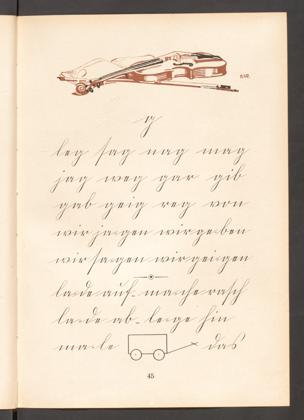 g
leg sag nag mag
jag weg gar gib
gab geig reg von
wir ja-gen wir ge-ben
wir sa-gen wir gei-gen
la-de auf - ma-che rasch
la-de ab - le-ge hin
ma-le das
45